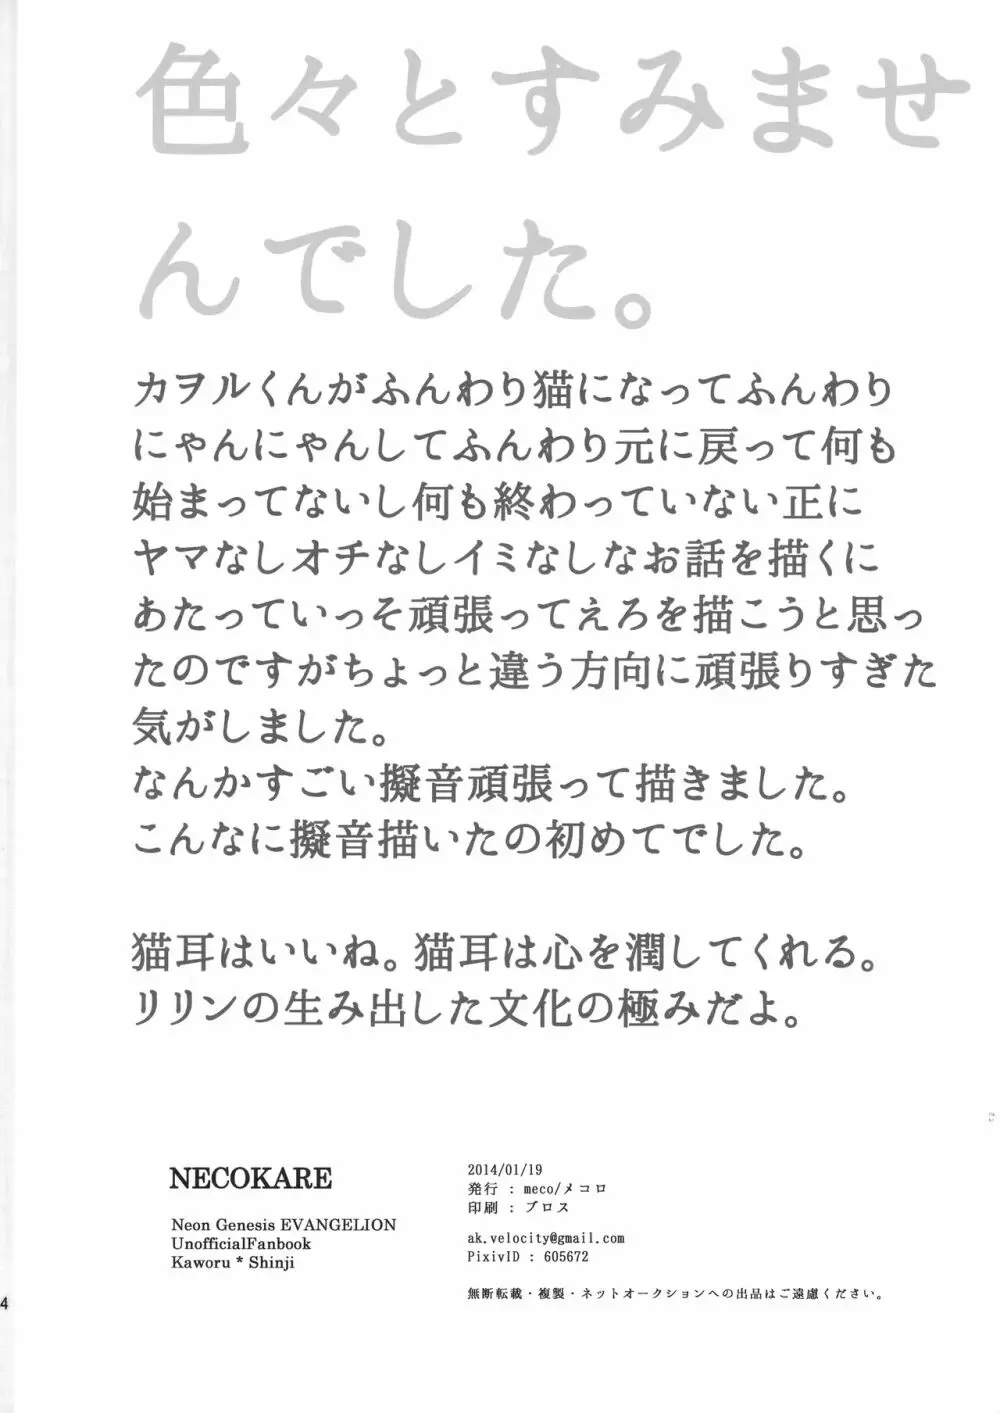 色々とすみませ
んでした。
カヲルくんがふんわり猫になってふんわり
にゃんにゃんしてふんわり元に戻って何も
始まってないし何も終わっていない正に
ヤマなしオチなしイミなしなお話を描くに
あたっていっそ頑張ってえろを描こうと思っ
たのですがちょっと違う方向に頑張りすぎた
気がしました。
なんかすごい擬音頑張って描きました。
こんなに擬音描いたの初めてでした。
猫耳はいいね。猫耳は心を潤してくれる。
リリンの生み出した文化の極みだよ。
NECOKARE
Neon Genesis EVANGELION
UnofficialFanbook
Kaworu * Shinji
2014/01/19
発行 : meco/メコロ
印刷 : ブロス
ak.velocity@gmail.com
PixivID : 605672
無断転載・複製・ネットオークションへの出品はご遠慮ください。
4